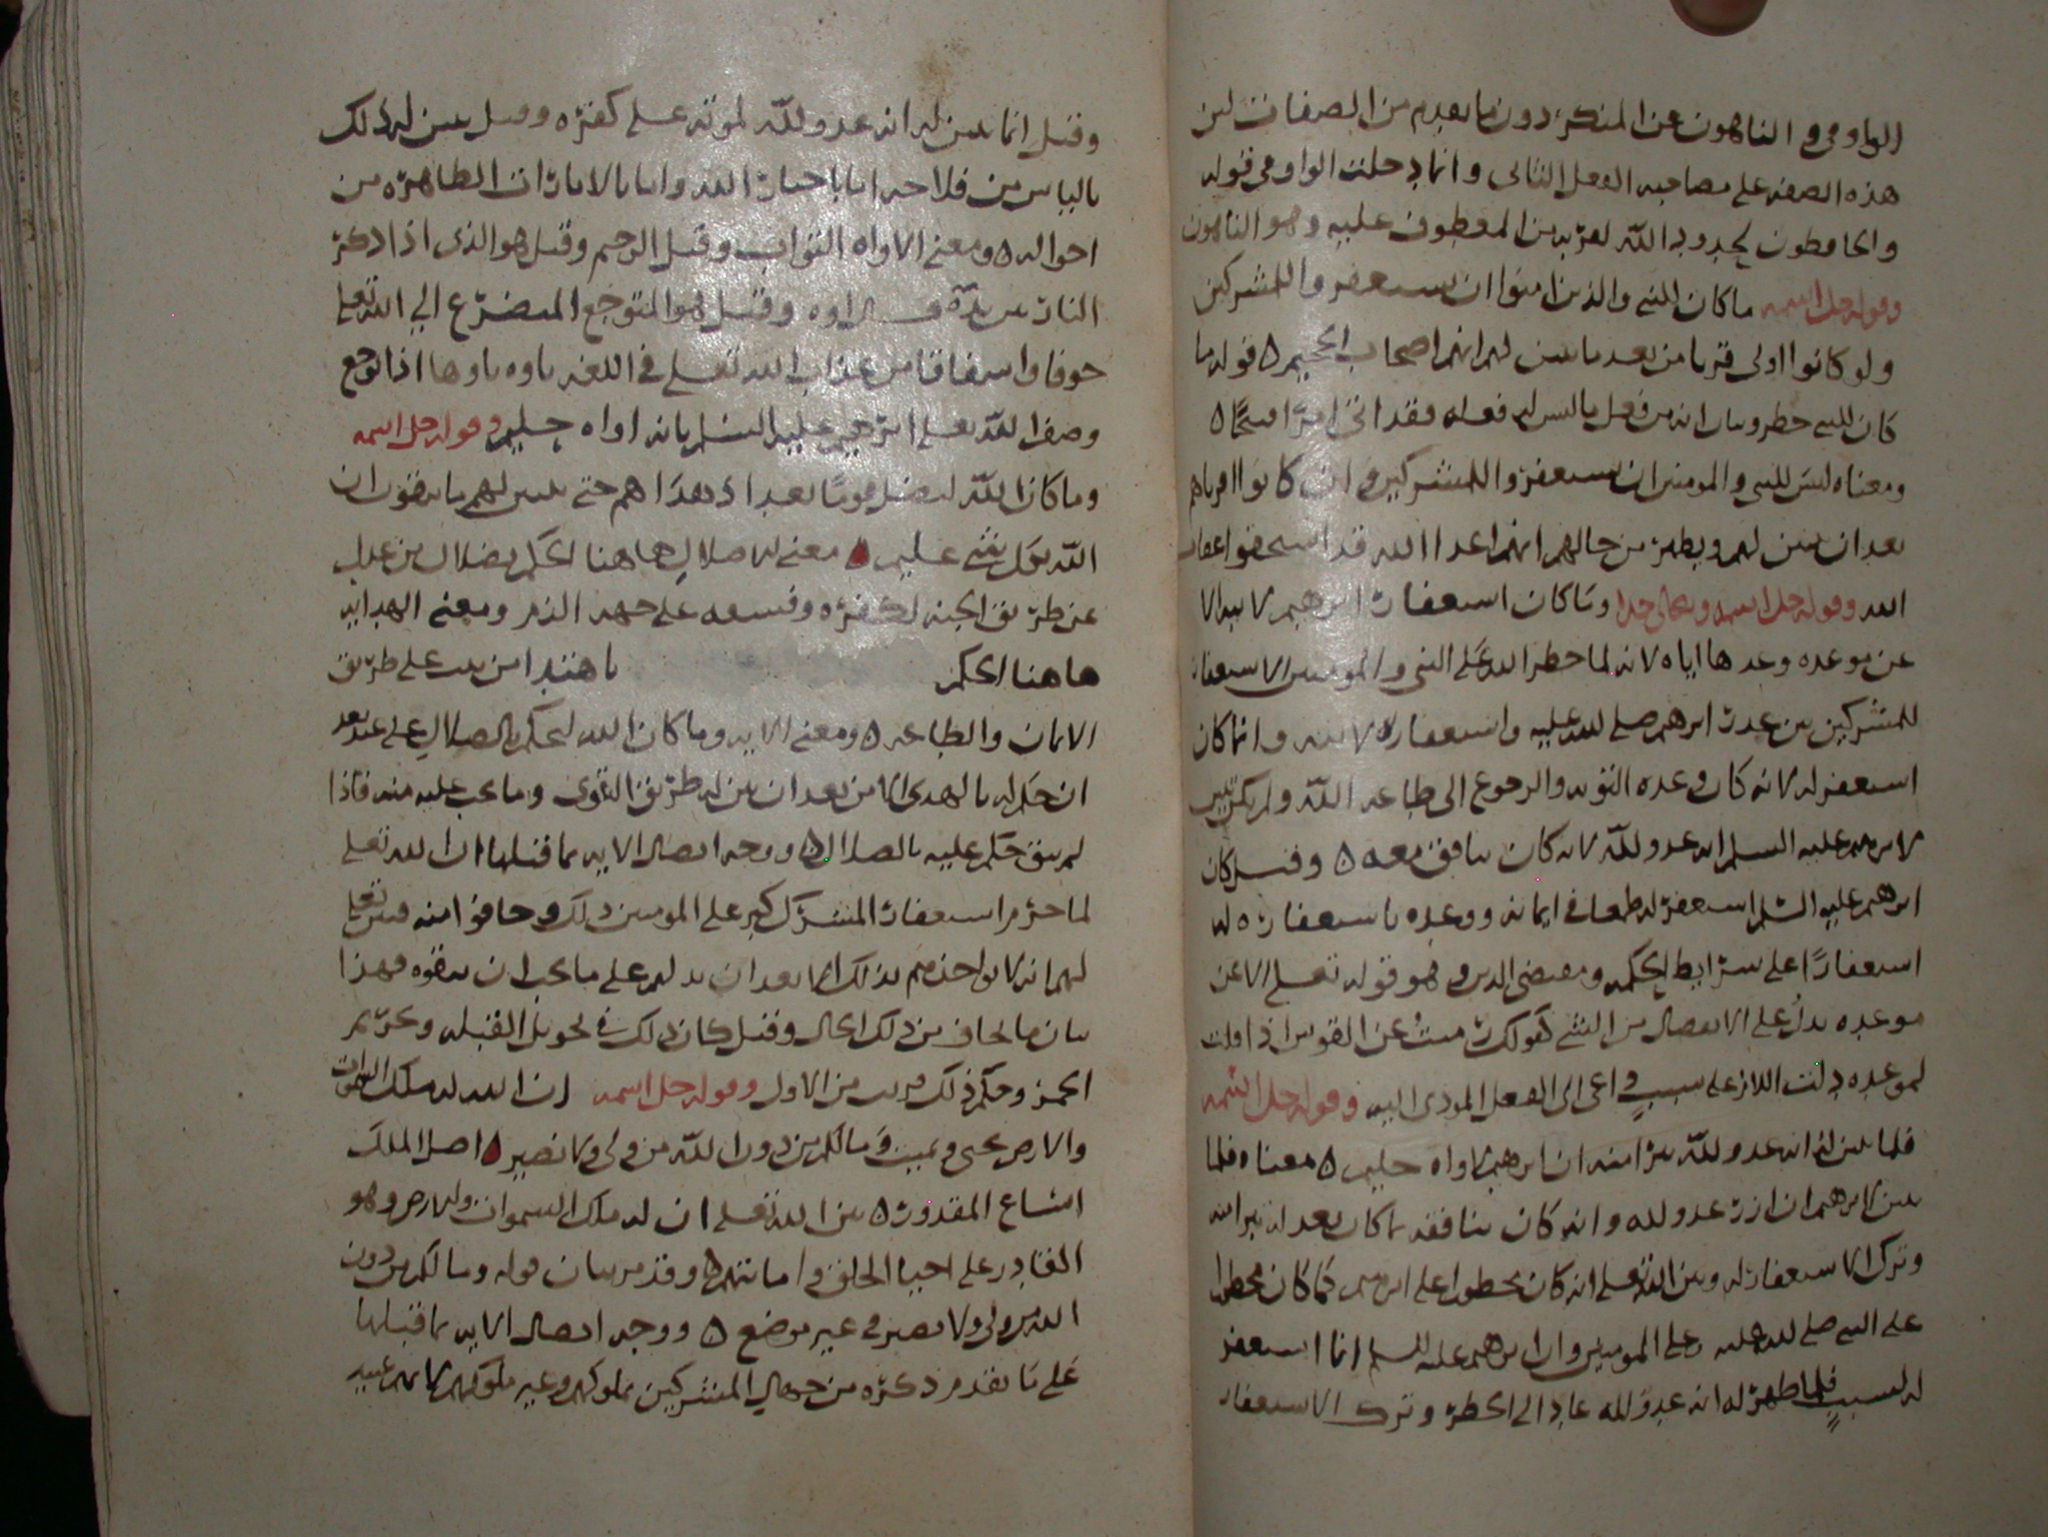 الواو في والناهون عن المنكر دون ما تقدم من الصفات لان
هذه الصفة على مصاحبة الفعل الثاني وانما دخلت الواو في قوله
والحافظون لحدود الله لقربه من المعطوف عليه وهو الناهون
وقوله جل اسمه ما كان للنبي والذين امنوا ان يستغفروا للمشركين
ولو كانوا اولى قربا من بعد ما تبين لهم انهم اصحاب الجحيم ه قوله ما
كان للنبي حظر وبيان انه من فعل ما ليس له فعله فقد اتى امرا قبيحًا ه
ومعناه ليس للنبي والمومنين ان يستغفروا للمشركين وان كانوا اقرباهم
بعد ان تبين لهم ويظهر من حالهم انهم اعداا لله قد استحقوا عقاب
الله وقوله جل اسمه وتعالى جدا وما كان استغفار ابرهيم لابيه الا
عن موعده وعدها اياه لانه لما حظر الله على النبي والمومنين الاستغفار
للمشركين بين عدر ابرهيم صلى الله عليه واستغفاره لابيه وانما كان
استغفر له لانه كان وعده التوبه والرجوع الى طاعه الله ولم يكن تبين
لابرهيم عليه السلم انه عدو لله لانه كان ينافق معه ه وقيل كان
ابرهيم عليه السلم استغفر له طمعا في ايمانه ووعده باستغفاره له
استغفارًا على شرايط الحكمه ومقتضى الدين وهو قوله تعلى الا عن
موعده يدل على الانفصال من الشي كقولك رميتُ عن القوس اذا قلت
لموعده دلت اللام على سببٍ داعي الى الفعل المودي اليه وقوله جل اسمه
فلما تبين له انه عدو لله تبرا منه ان ابرهيم لاواه حليم ه معناه فلما
تبين لابرهيم ان ازر عدو لله وانه كان ينافقه بما كان يعد له تبرا منه
وترك الاستغفار له وبين الله تعلى انه كان محظورا على ابرهيم كما كان محظورا
على النبي صلى الله عليه وعلى المومنين وان ابرهيم عليه السلم انما استغفر
له لسببٍ فلما ظهر له انه عدو لله عاد الى الحظر وترك الاستغفار
وقيل انما تبين له انه عدو لله لموته على كفره وقيل تبين له ذلك
بالياس من فلاحه اما باخبار الله واما بالامارات الظاهره من
احواله ه ومعنى الاواه التواب وقيل الرحيم وقيل هو الذي اذا ذكر
النار قال اوه وقيل هو المتوجع المتضرع الى الله تعلى
خوفا واشفاقا من عذاب الله تعلى في اللغه ياوه ياوها اذا توجع
وصف الله تعلى ابرهيم عليه السلم بانه اواه حليم وقوله جل اسمه
وما كان الله ليضل قومًا بعد اذ هداهم حتى يبين لهم ما يتقون ان
الله بكل شي عليم ه معنى له ضلال هاهنا الحكم بضلال من عدل
عن طريق الجنه لكفره وفسقه على جهه الذم ومعنى الهدايه
هاهنا الحكم باهتدا من يثبت على طريق
الايمان والطاعه ه ومعنى الايه وما كان الله ليحكم بالضلال على عبد بعد
ان حكم له بالهدى الا من بعد ان بين له طريق التقوى وما يجب عليه منه فاذا
لم يتق حكم عليه بالضلال ه ووجه اتصال الايه بما قبلها ان الله تعلى
لما حرم استغفار المشركين على المومنين ذلك وخافوا منه فبين تعلى
لهم انه لا يواخذهم بذلك الا بعد ان يدلهم على ما يجب ان يتقوه فهذا
بيان ما يخاف من ذلك الحال وقيل كان ذلك في تحويل القبله وتحريم
الخمر وحكم ذلك قريب من الاول وقوله جل اسمه ان الله له ملك السموات
والارض يحيي ويميت وما لكم من دون الله من ولي ولا نصير ه اصل الملك
اتساع المقدور ه بين الله تعلى ان له ملك السموات والارض وهو
القادر على احيا الخلق واماتتهم ه وقد مر بيان قوله وما لكم من دون
الله من ولي ولا نصير في غير موضع ه ووجه اتصال الايه بما قبلها
على ما تقدم ذكره من جهال المشركين بملوكهم وغير ملوكهم لانهم عبيد